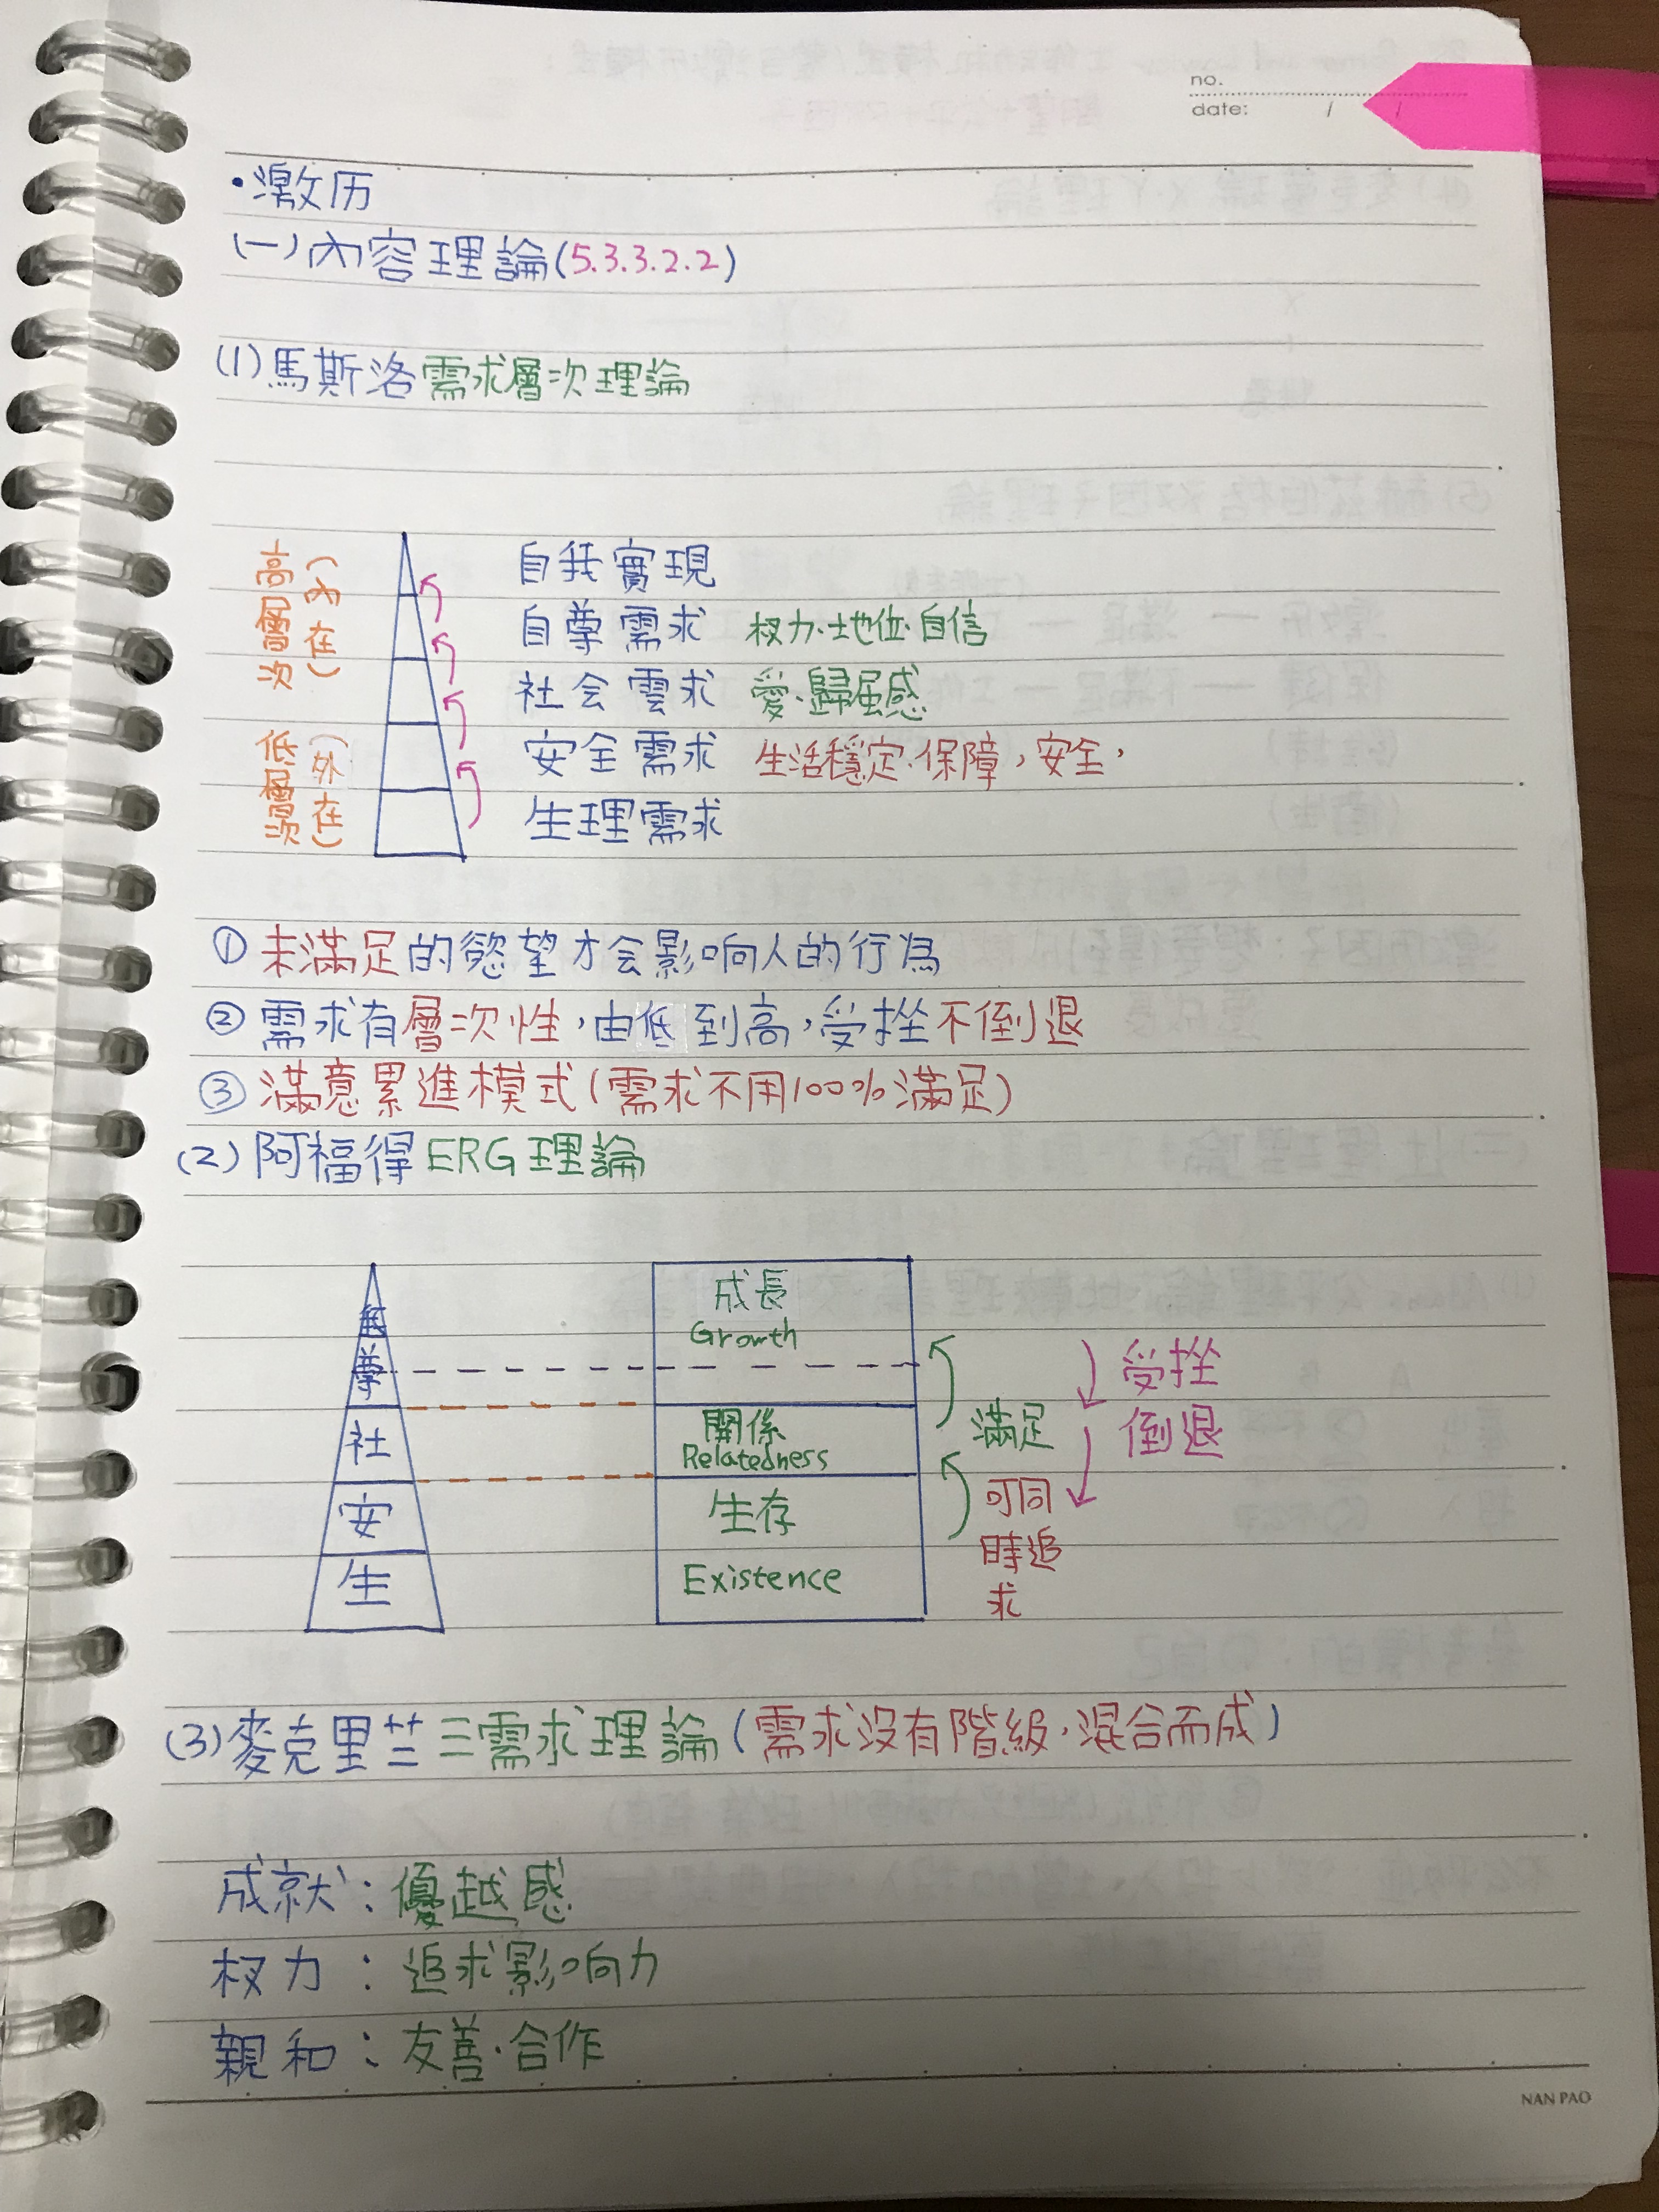 no.
date: / /
•激历
(一)內容理論(5.3.3.2.2)
(1)馬斯洛需求層次理論
高層次(內在)
低層次(外在)
自我實現
自尊需求 权力·地位·自信
社会需求 愛·歸屬感
安全需求 生活穩定·保障,安全,
生理需求
① 未滿足的慾望才会影响人的行為
② 需求有層次性,由低到高,受挫不倒退
③ 滿意累進模式(需求不用100%滿足)
(2)阿福得ERG理論
尊
社
安
生
成長
Growth
關係
Relatedness
生存
Existence
滿足
可同時追求
受挫
倒退
(3)麥克里兰三需求理論(需求没有階級,混合而成)
成就:優越感
权力:追求影响力
親和:友善·合作
NAN PAO